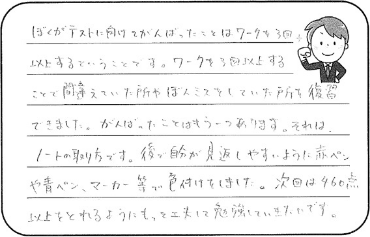 ぼくがテストに向けてがんばったことはワークを3回
以上するということです。ワークを3回以上する
ことで間違えていた所やぼんミスをしていた所を復習
できました。がんばったことはもう一つあります。それは、
ノートの取り方です。後で自分が見返しやすいように赤ペン
や青ペン、マーカー等で色付けをしました。次回は460点
以上をとれるようにもっと工夫して勉強していきたいです。